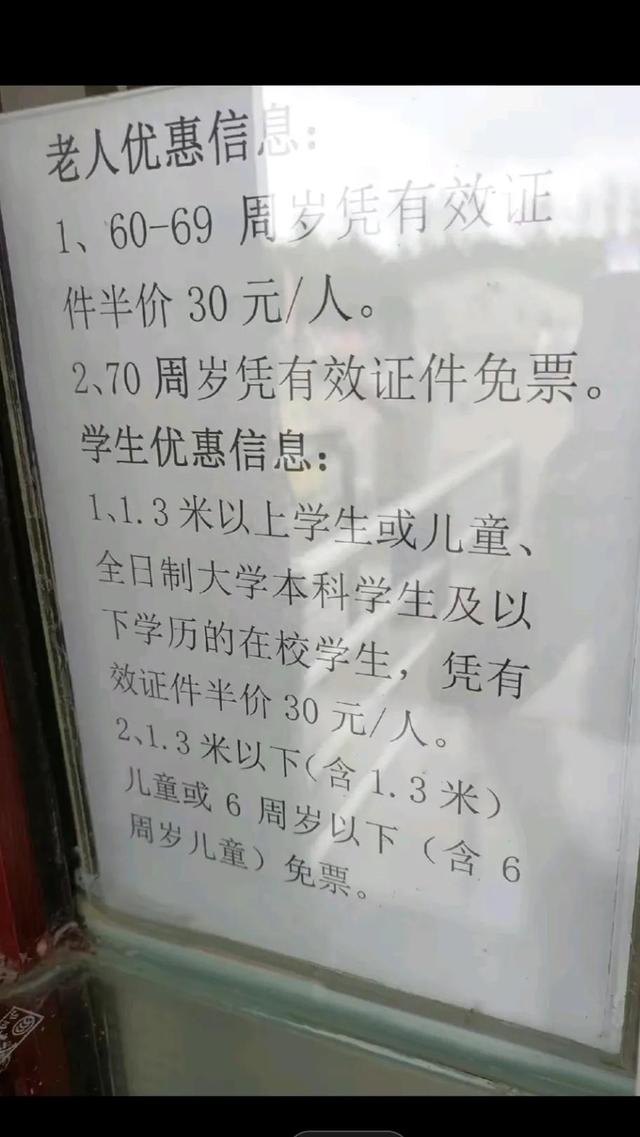 老人优惠信息：
1、60-69 周岁凭有效证
件半价 30 元/人。
2、70 周岁凭有效证件免票。
学生优惠信息：
1、1.3 米以上学生或儿童、
全日制大学本科学生及以
下学历的在校学生，凭有
效证件半价 30 元/人。
2、1.3 米以下（含 1.3 米）
儿童或 6 周岁以下（含 6
周岁儿童）免票。